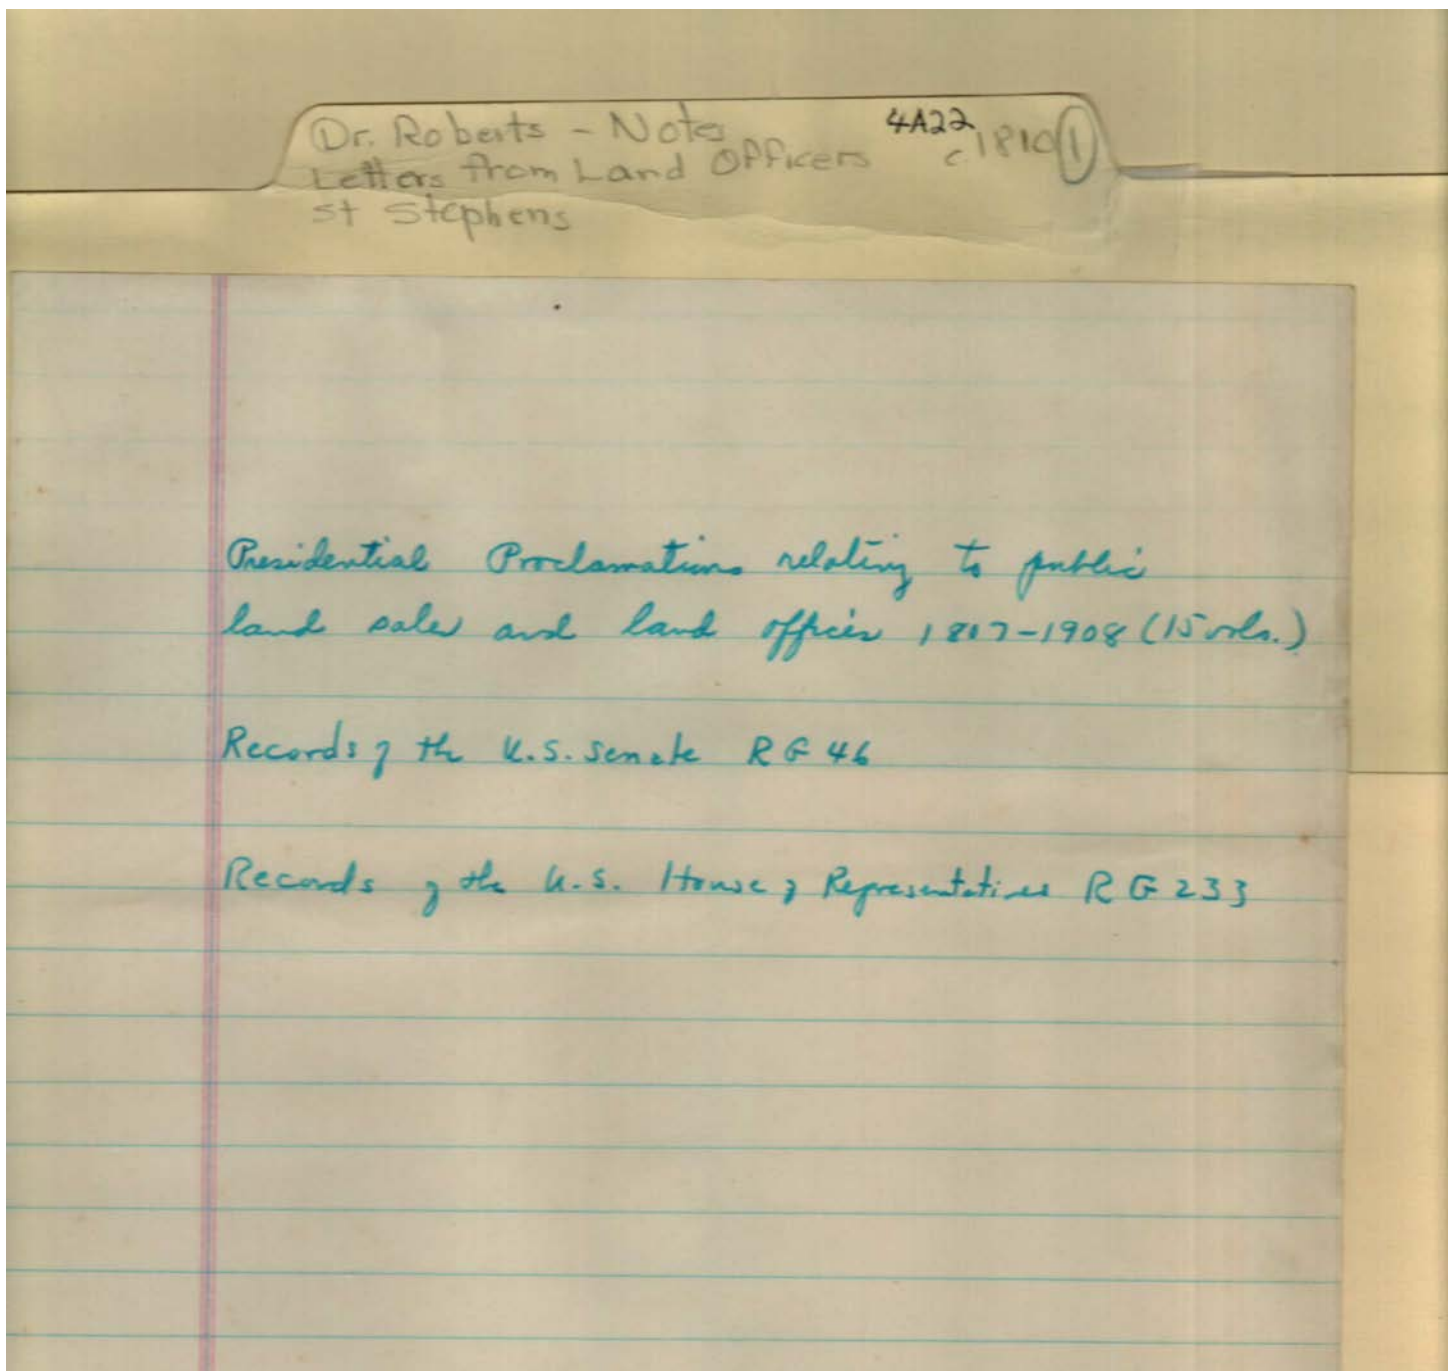 Dr. Roberts - Notes 4A22 c. 1810 1
Letters from Land Officers
St Stephens
Presidential Proclamations relating to public
land sales and land offices 1807-1908 (15 vols.)
Records of the U.S. Senate RG 46
Records of the U.S. House of Representatives RG 233